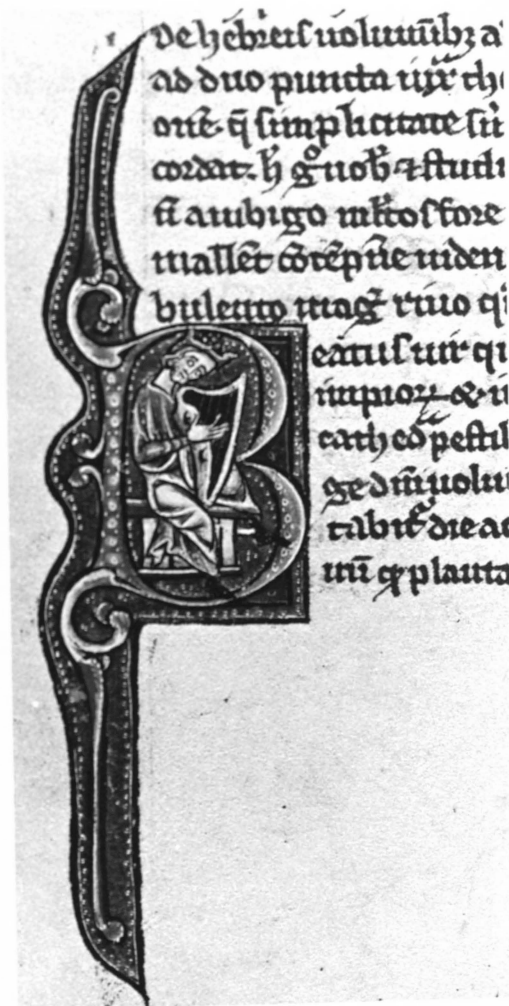 de hebreis uoluminibꝫ a
ad duo puncta iuxͣ the
one q̄ simplicitate sͥn
cordat. h̄ g̊ nob̄ ⁊ studi
n̄ ambigo ml̄tos fore
mallēt cōtēpn̄e uiden
bulento mag̃ riuo q
Beatus uir qi
impioꝝ & i
cathed̃ pestil
ge dn̄i uolu
tabit᷑ die ac
nū qͦ planta